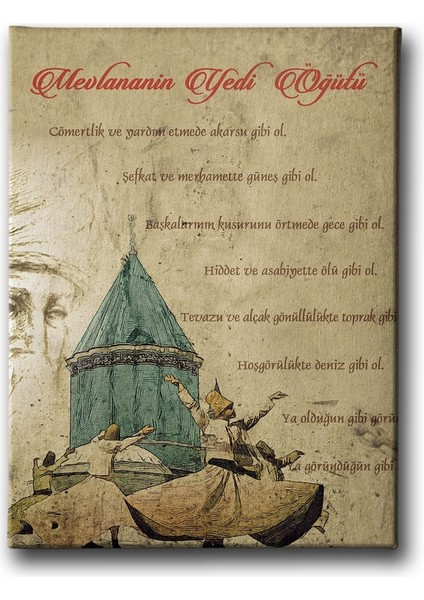 Mevlananin Yedi Öğütü
Cömertlik ve yardım etmede akarsu gibi ol.
Şefkat ve merhamette güneş gibi ol.
Başkalarının kusurunu örtmede gece gibi ol.
Hiddet ve asabiyette ölü gibi ol.
Tevazu ve alçak gönüllülükte toprak gibi
Hoşgörülükte deniz gibi ol.
Ya olduğun gibi görü
Ya göründüğün gibi